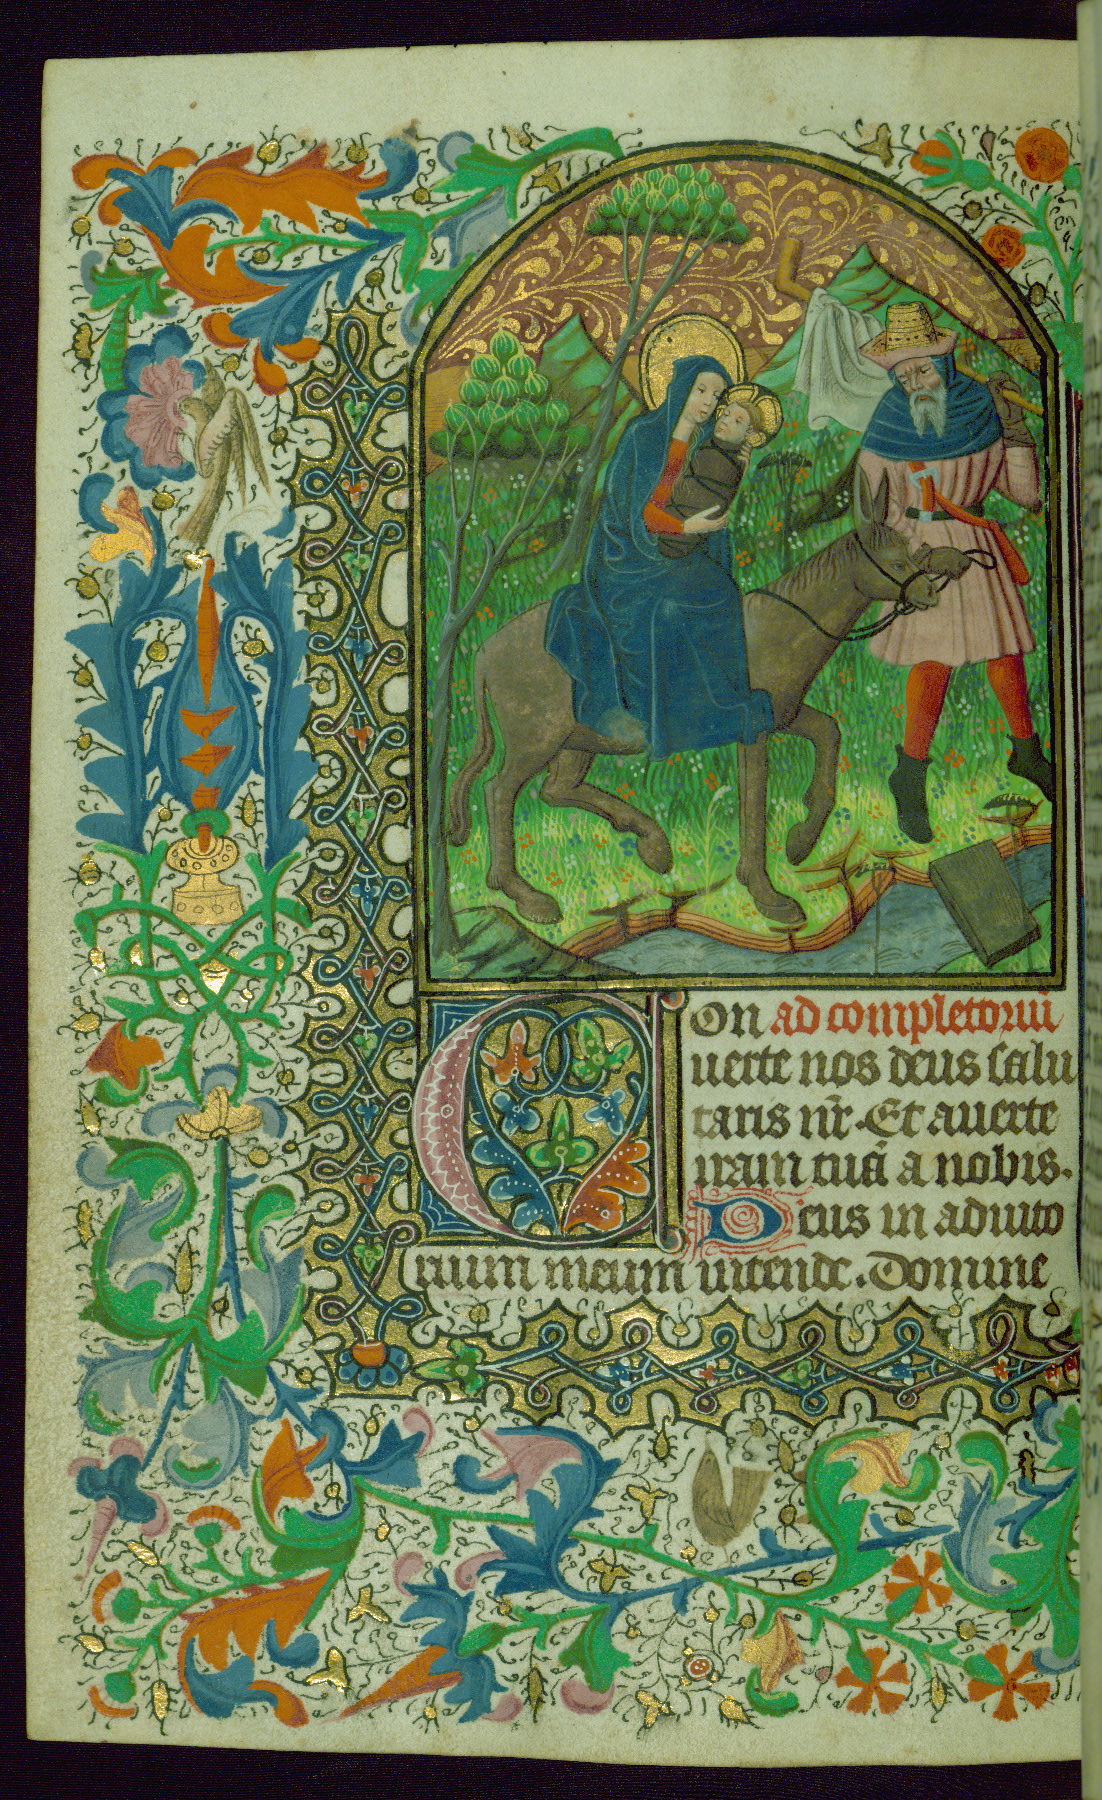 Con ad completoriū
uerte nos deus salu
taris nr̄. Et auerte
iram tuā a nobis.
Deus in adiuto
rium meum intende. Domine